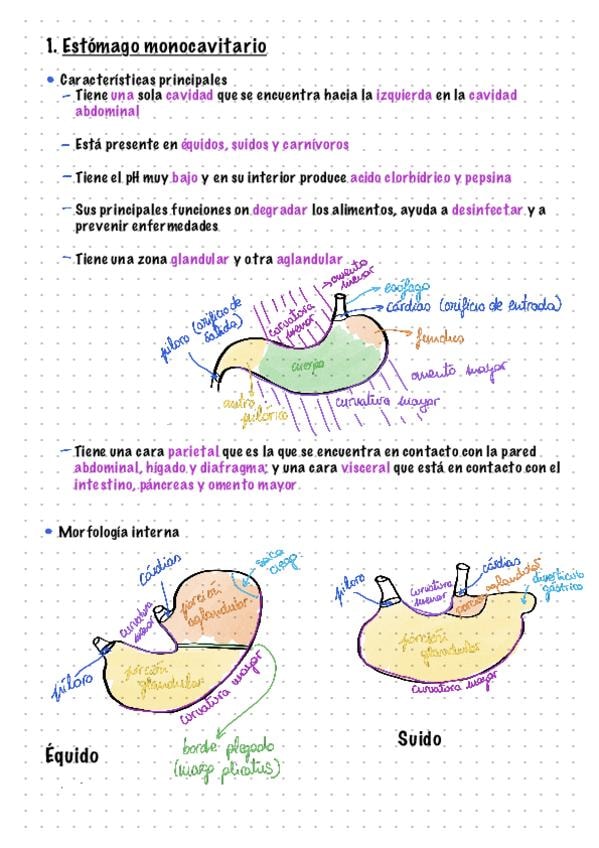 1. Estómago monocavitario
• Características principales
– Tiene una sola cavidad que se encuentra hacia la izquierda en la cavidad
abdominal
– Está presente en équidos, suidos y carnívoros
– Tiene el pH muy bajo y en su interior produce acido clorhídrico y pepsina
– Sus principales funciones on degradar los alimentos, ayuda a desinfectar y a
prevenir enfermedades
– Tiene una zona glandular y otra aglandular
omento
menor
esófago
cárdias (orificio de entrada)
píloro (orificio de
salida)
curvatura
menor
fundus
cuerpo
omento mayor
antro
pilórico
curvatura mayor
– Tiene una cara parietal que es la que se encuentra en contacto con la pared
abdominal, hígado y diafragma; y una cara visceral que está en contacto con el
intestino, páncreas y omento mayor
• Morfología interna
saco
ciego
cárdias
porción
aglandular
curvatura
menor
píloro
porción
glandular
curvatura mayor
borde plegado
(margo plicatus)
Équido
píloro
curvatura
menor
cárdias
porción aglandular
divertículo
gástrico
porción
glandular
curvatura mayor
Suido